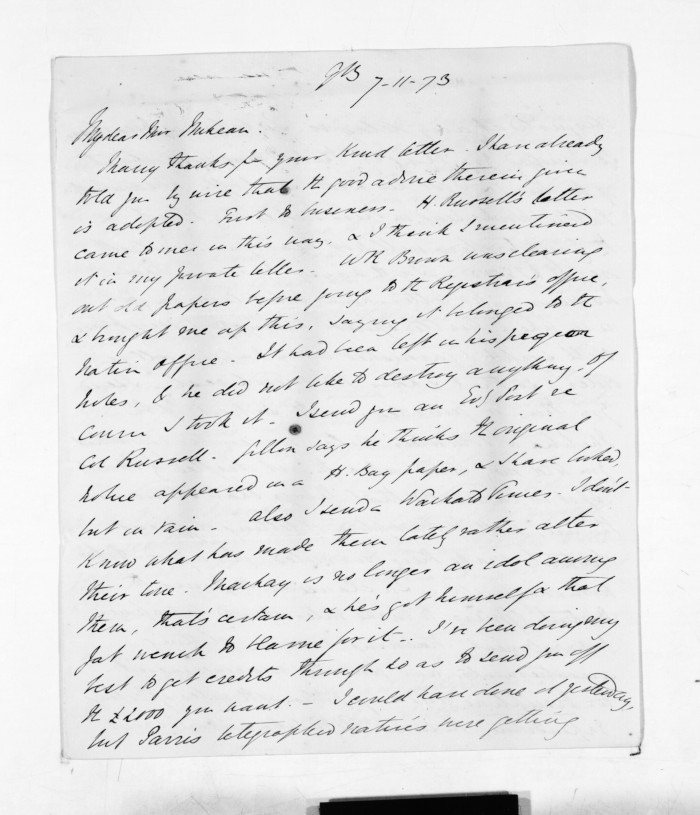 7-11-73
My dear Mr McLean.
Many thanks for your kind letter. I have already
told you by wire that the good advice therein given
is adopted. First to business. H. Russell's letter
came to me in this way, & I think I mentioned
it in my private letter. Wm Brown was clearing
out old papers before going to the Registrar's office,
& brought me up this, saying it belonged to the
Native Office. It had been left in his pigeon
holes, & he did not like to destroy anything. Of
course I took it. I send you an Evg Post re
Col Russell. says he thinks the original
notice appeared in a H. Bay paper, & I have looked,
but in vain. Also I send a Waikato Times. I don't
know what has made them lately rather alter
their tone. Mackay is no longer an idol among
them, that's certain, & he's got himself & that
fat wench to blame for it. I've been doing my
best to get credits through so as to send you off
the £2000 you want. - I could have done it yesterday,
but Parris telegraphed natives were getting